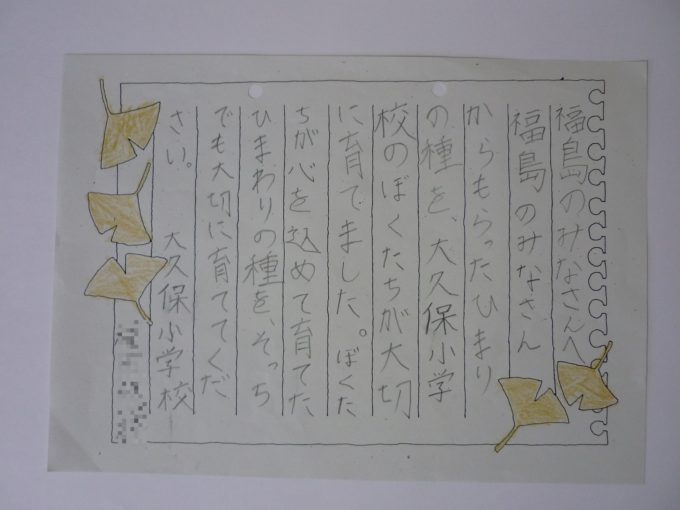 福島のみなさんへ
福島のみなさん
からもらったひまり
の種を、大久保小学
校のぼくたちが大切
に育てました。ぼくた
ちが心を込めて育てた
ひまわりの種を、そっち
でも大切に育ててくだ
さい。 大久保小学校